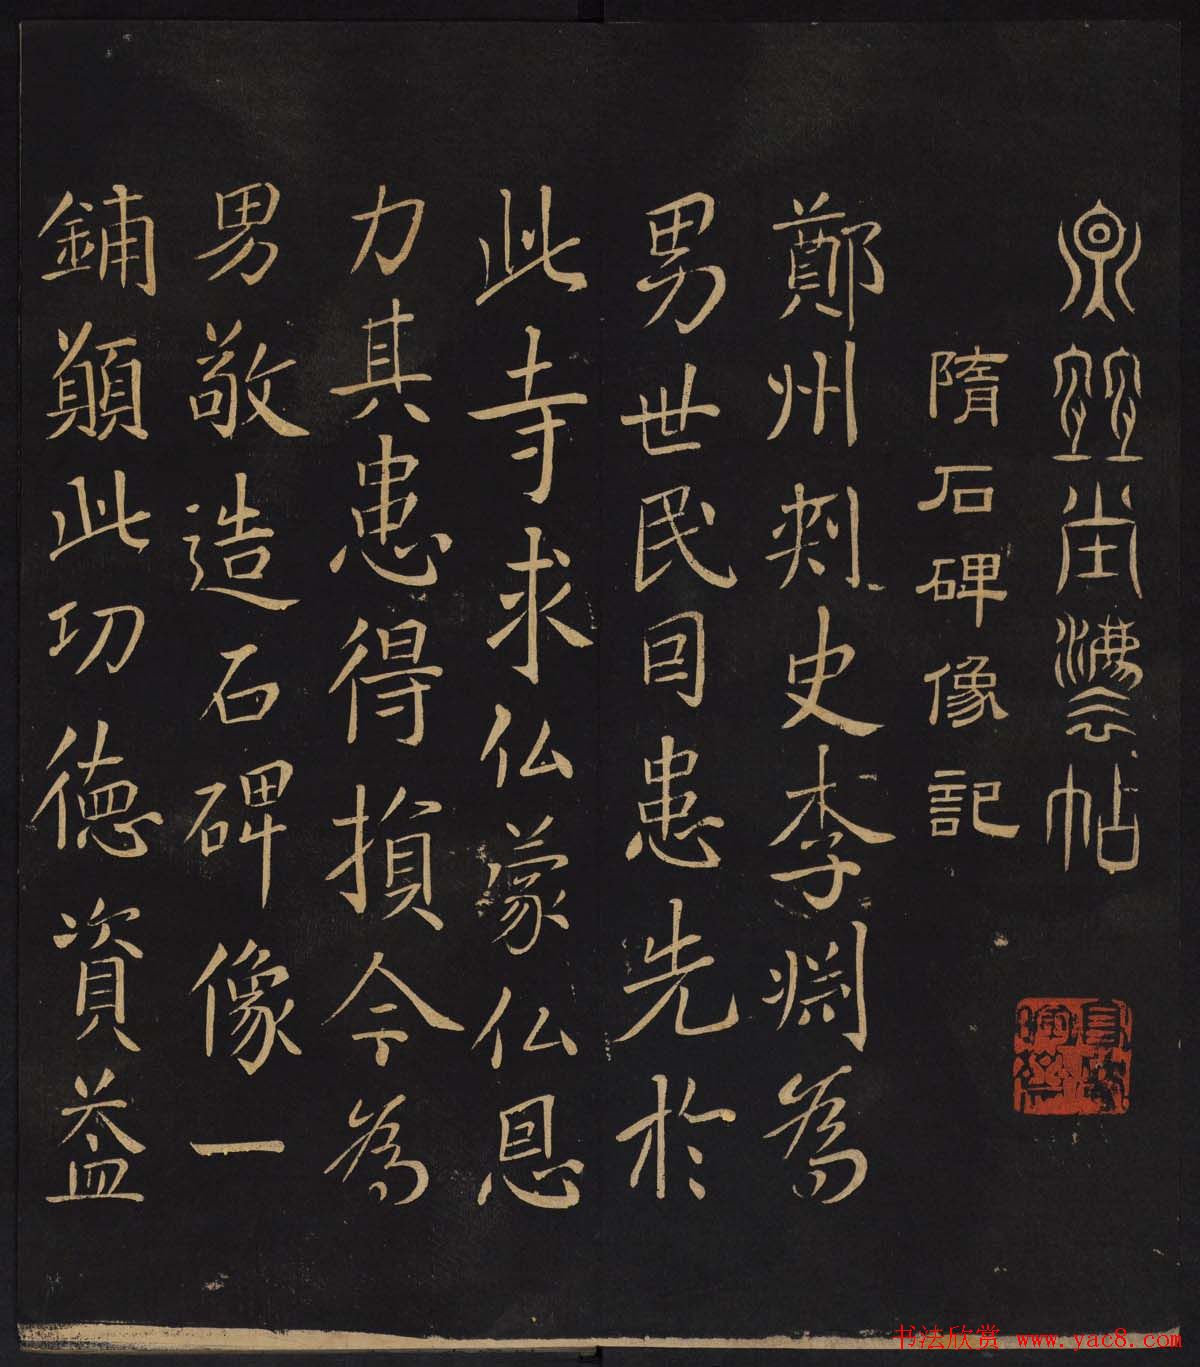 堂法帖
隋石碑像記
鄭州刺史李淵為
男世民因患先於
此寺求仏蒙仏恩
力其患得損今為
男敬造石碑像一
鋪願此功德資益
书法欣赏 www.yac8.com